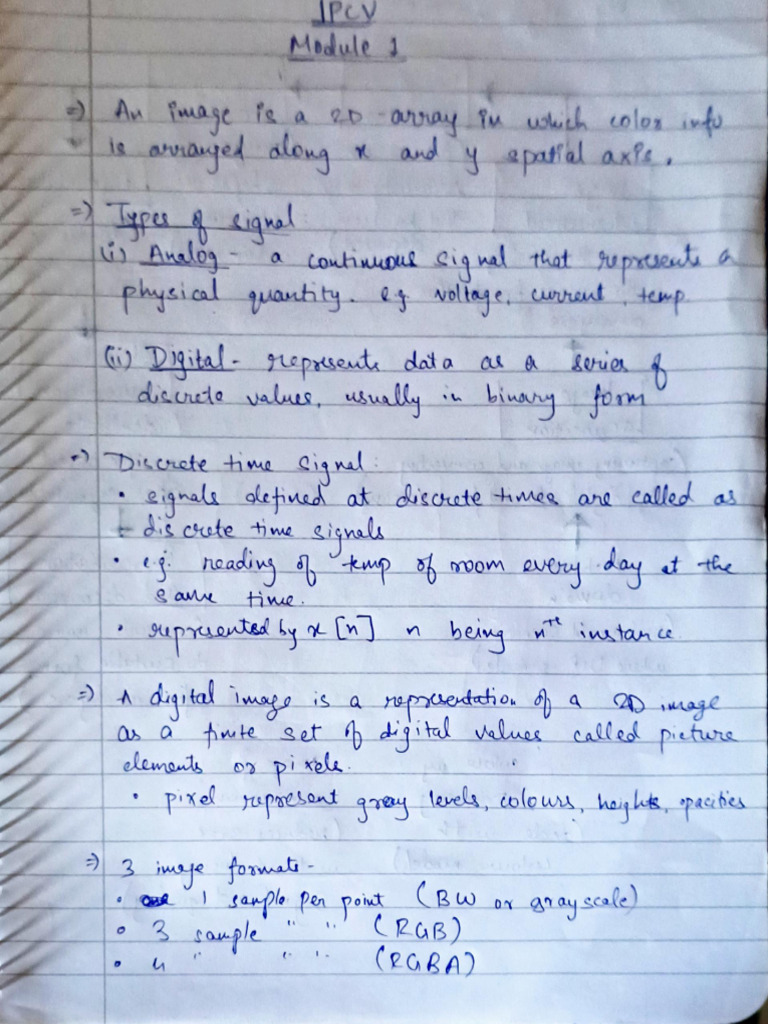 IPCV
Module 1
=) An image is a 2D array in which color info
is arranged along x and y spatial axis.
=) Types of signal
(i) Analog - a continuous signal that represents a
physical quantity. eg voltage, current, temp
(ii) Digital - represents data as a series of
discrete values, usually in binary form
=) Discrete time signal:
• signals defined at discrete times are called as
discrete time signals
• e.g. reading of temp of room every day at the
same time.
• represented by x[n] n being nth instance
=) A digital image is a representation of a 2D image
as a finite set of digital values called picture
elements or pixels.
• pixel represent gray levels, colours, heights, opacities
=) 3 image formats -
• 1 sample per point (BW or grayscale)
• 3 sample " " (RGB)
• 4 " " " (RGBA)